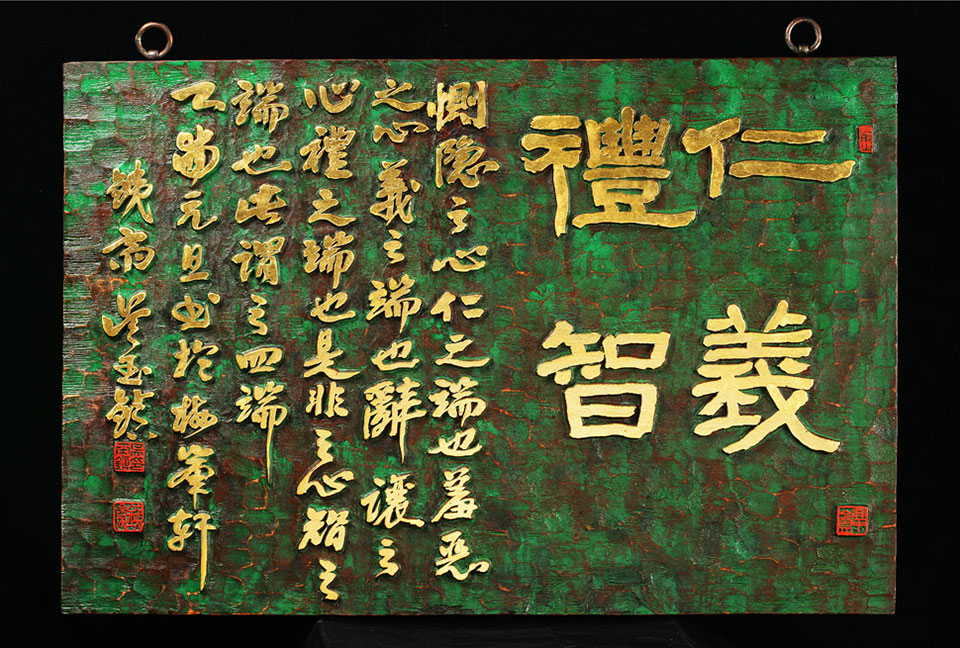 仁義
禮智
惻隐之心仁之端也羞惡
之心義之端也辭讓之
心禮之端也是非之心智之
端也此謂之四端
元旦书於梅峯軒
鐵斎吳玉鎭